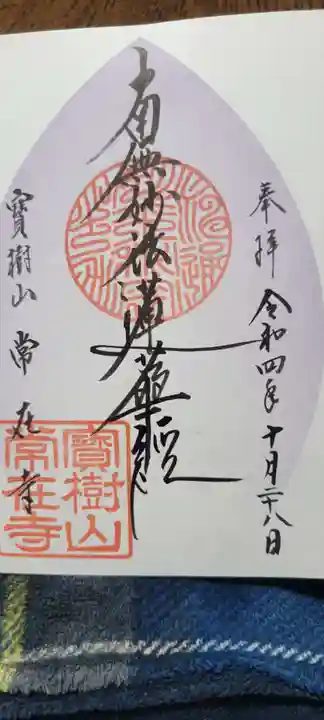 奉拝 令和四年十月二十八日
南無妙法蓮華経
寶樹山 常在寺
寶樹山
常在寺